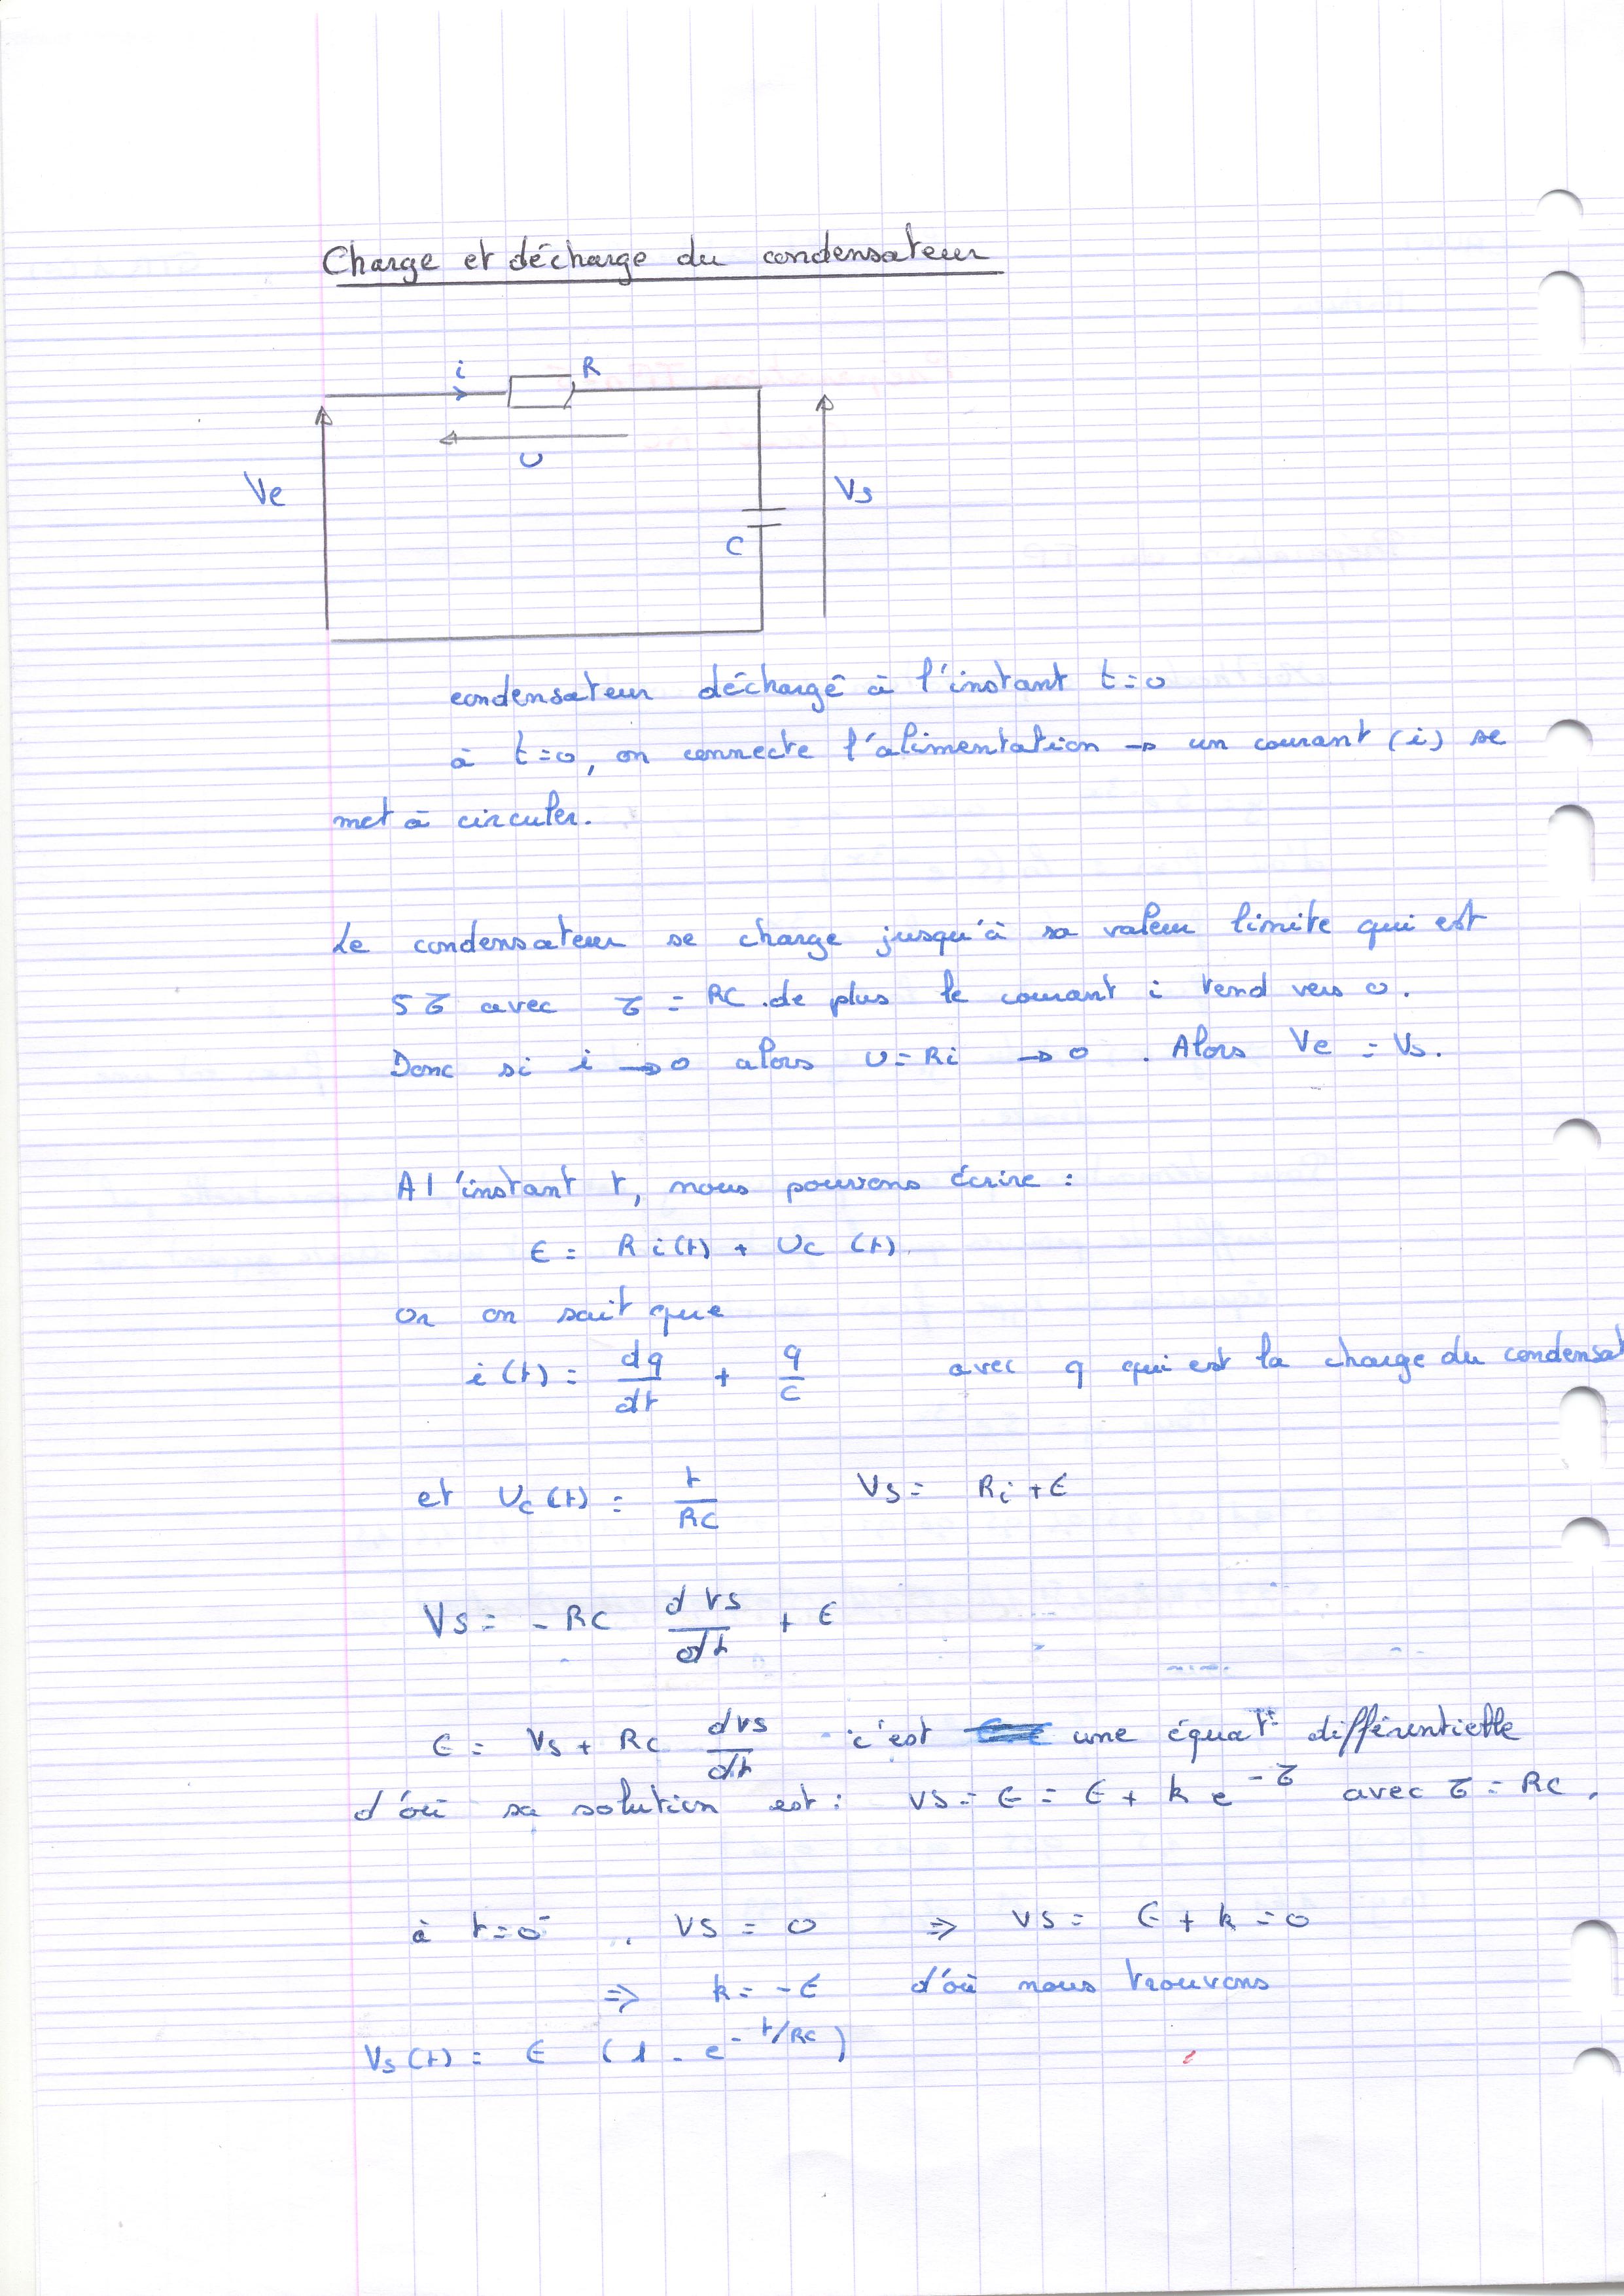 Charge et décharge du condensateur
i
R
U
Ve
Vs
C
condensateur déchargé à l'instant t=0
à t=0, on connecte l'alimentation → un courant (i) se
met à circuler.
Le condensateur se charge jusqu'à sa valeur limite qui est
5τ avec τ = RC. de plus le courant i tend vers 0.
Donc si i → 0 alors U=Ri → 0 . Alors Ve = Vs.
A l'instant t, nous pouvons écrire :
E = Ri(t) + Uc (t).
Or on sait que
i(t) = dq/dt + q/c avec q qui est la charge du condensat
et Uc(t) = t/RC Vs = Ri + E
Vs = - RC dVs/dt + E
E = Vs + RC dvs/dt c'est une équat° différentielle
d'où sa solution est : Vs = E = E + k e^-τ avec τ = RC.
à t=0⁻ , Vs = 0 ⇒ Vs = E + k = 0
⇒ k = -E d'où nous trouvons
Vs(t) = E (1 - e^-t/RC)